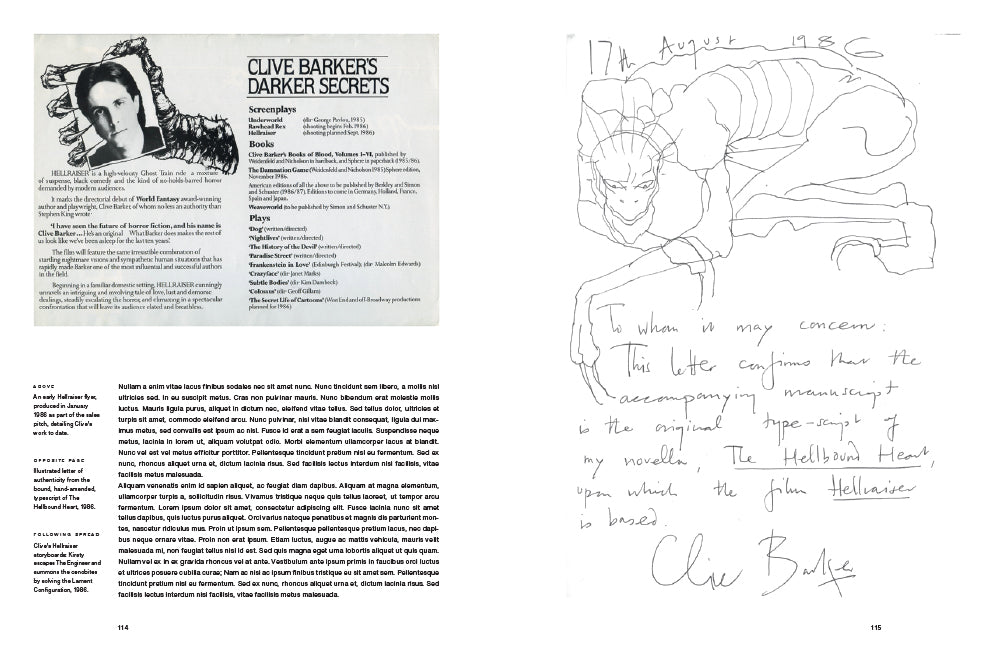 HELLRAISER is a high-velocity Ghost Train ride a mixture
of suspense, black comedy and the kind of no-holds-barred horror
demanded by modern audiences.
It marks the directorial debut of World Fantasy award-winning
author and playwright, Clive Barker, of whom no less an authority than
Stephen King wrote
'I have seen the future of horror fiction, and his name is
Clive Barker ... He's an original What Barker does makes the rest of
us look like we've been asleep for the last ten years!'
The film will feature the same irresistible combination of
startling nightmare visions and sympathetic human situations that has
rapidly made Barker one of the most influential and successful authors
in the field.
Beginning in a familiar domestic setting, HELLRAISER cunningly
unravels an intriguing and involving tale of love, lust and demonic
dealings, steadily escalating the horror, and climaxing in a spectacular
confrontation that will leave its audience elated and breathless.
CLIVE BARKER'S
DARKER SECRETS
Screenplays
Underworld (dir George Pavlou, 1985)
Rawhead Rex (shooting begins Feb. 1986)
Hellraiser (shooting planned Sept. 1986)
Books
Clive Barker's Books of Blood, Volumes I–VI, published by
Weidenfeld and Nicholson in hardback, and Sphere in paperback (1985/86).
The Damnation Game (Weidenfeld and Nicholson 1985) Sphere edition,
November 1986.
American editions of all the above to be published by Berkley and Simon
and Schuster (1986/87). Editions to come in Germany, Holland, France,
Spain and Japan.
Weaveworld (to be published by Simon and Schuster N.Y.)
Plays
'Dog' (written/directed)
'Nightlives' (written/directed)
'The History of the Devil' (written/directed)
'Paradise Street' (written/directed)
'Frankenstein in Love' (Edinburgh Festival); (dir Malcolm Edwards)
'Crazyface' (dir Janet Marks)
'Subtle Bodies' (dir Kim Dambeck)
'Colossus' (dir Geoff Gillam)
'The Secret Life of Cartoons' (West End and off-Broadway productions
planned for 1986)
ABOVE
An early Hellraiser flyer,
produced in January
1986 as part of the sales
pitch, detailing Clive's
work to date.
OPPOSITE PAGE
Illustrated letter of
authenticity from the
bound, hand-amended,
typescript of The
Hellbound Heart, 1986.
FOLLOWING SPREAD
Clive's Hellraiser
storyboards: Kirsty
escapes The Engineer and
summons the cenobites
by solving the Lament
Configuration, 1986.
Nullam a enim vitae lacus finibus sodales nec sit amet nunc. Nunc tincidunt sem libero, a mollis nisl
ultricies sed. In eu suscipit metus. Cras non pulvinar mauris. Nunc bibendum erat molestie mollis
luctus. Mauris ligula purus, aliquet in dictum nec, eleifend vitae tellus. Sed tellus dolor, ultricies et
turpis sit amet, commodo eleifend arcu. Nunc pulvinar, nisi vitae blandit consequat, ligula dui max-
imus metus, sed convallis est ipsum ac nisl. Fusce id erat a sem feugiat iaculis. Suspendisse neque
metus, lacinia in lorem ut, aliquam volutpat odio. Morbi elementum ullamcorper lacus at blandit.
Nunc vel est vel metus efficitur porttitor. Pellentesque tincidunt pretium nisi eu fermentum. Sed ex
nunc, rhoncus aliquet urna et, dictum lacinia risus. Sed facilisis lectus interdum nisi facilisis, vitae
facilisis metus malesuada.
Aliquam venenatis enim id sapien aliquet, ac feugiat diam dapibus. Aliquam at magna elementum,
ullamcorper turpis a, sollicitudin risus. Vivamus tristique neque quis tellus laoreet, ut tempor arcu
fermentum. Lorem ipsum dolor sit amet, consectetur adipiscing elit. Fusce lacinia nunc sit amet
tellus dapibus, quis luctus purus aliquet. Orci varius natoque penatibus et magnis dis parturient mon-
tes, nascetur ridiculus mus. Proin ut ipsum sem. Pellentesque pellentesque pretium lacus, nec dapi-
bus neque ornare vitae. Proin non erat ipsum. Etiam luctus, augue ac mattis vehicula, mauris velit
malesuada mi, non feugiat tellus nisl id est. Sed quis magna eget urna lobortis aliquet ut quis quam.
Nullam vel ex in ex gravida rhoncus vel at ante. Vestibulum ante ipsum primis in faucibus orci luctus
et ultrices posuere cubilia curae; Nam ac nisi ac ipsum finibus tristique eu sit amet sem. Pellentesque
tincidunt pretium nisi eu fermentum. Sed ex nunc, rhoncus aliquet urna et, dictum lacinia risus. Sed
facilisis lectus interdum nisi facilisis, vitae facilisis metus malesuada.
114
17th August 1986
To whom it may concern:
This letter confirms that the
accompanying manuscript
is the original type-script of
my novella, The Hellbound Heart,
upon which the film Hellraiser
is based.
Clive Barker
115